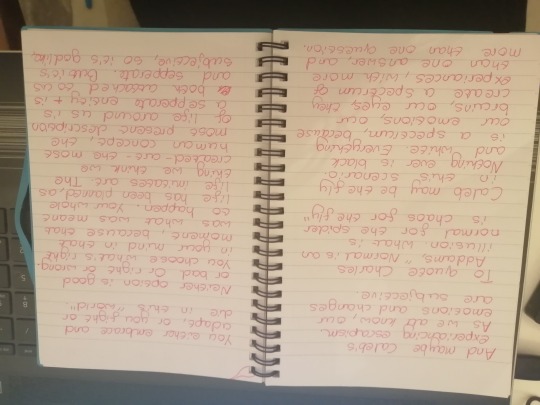 And maybe Caleb's
experiancing escapism.
As we all know, our
emotions and changes
are subjective.
To quote Charles
Addams, "Normal is an
illusion. what is
normal for the spider
is chaos for the fly"
Caleb may be the fly
in this scenario.
Nothing ever is black
and white. Everything
is a spectrum, because
our emotions, our
brains, our eyes, they
create a spectrum of
experiances, with more
than one answer, and
more than one question.
You either embrace and
adapt, or you fight or
die in this "world".
Neither option is good
or bad or right or wrong-
You choose what's right
in your mind in that
moment, because that
was what was meant
to happen. Your whole
life has been planned, as
life imitates art. The
thing we think we
created-art-the most
human concept, the
most present description
of life around us is
a sepperate entity + is
both attached to us
and sepperate. But it's
subjective, so it's godlike,